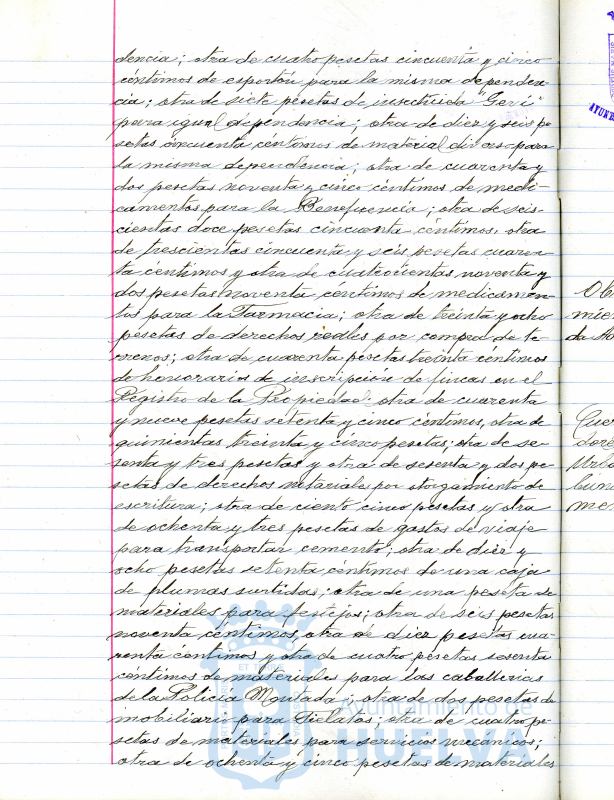 dencia; otra de cuatro pesetas cincuenta y cinco
céntimos de esportón para la misma dependen-
cia; otra de siete pesetas de insecticida "Geri"
para igual dependencia; otra de diez y seis pe-
setas cincuenta céntimos de material diverso para
la misma dependencia; otra de cuarenta y
dos pesetas noventa y cinco céntimos de medi-
camentos para la Beneficencia; otra de seis-
cientas doce pesetas cincuenta céntimos, otra
de trescientas cincuenta y seis pesetas cuaren-
ta céntimos y otra de cuatrocientas noventa y
dos pesetas noventa céntimos de medicamen-
tos para la Farmacia; otra de treinta y ocho
pesetas de derechos reales por compra de te-
rrenos; otra de cuarenta pesetas treinta céntimos
de honorarios de inscripción de fincas en el
Registro de la Propiedad; otra de cuarenta
y nueve pesetas setenta y cinco céntimos, otra de
quinientas treinta y cinco pesetas, otra de se-
senta y tres pesetas y otra de sesenta y dos pe-
setas de derechos notariales por otorgamiento de
escritura; otra de ciento cinco pesetas y otra
de ochenta y tres pesetas de gastos de viaje
para transportar cemento; otra de diez y
ocho pesetas setenta céntimos de una caja
de plumas surtidas; otra de una peseta de
materiales para festejos; otra de seis pesetas
noventa céntimos, otra de diez pesetas cua-
renta céntimos y otra de cuatro pesetas sesenta
céntimos de materiales para las caballerías
de la Policía Montada; otra de dos pesetas de
mobiliario para Fielatos; otra de cuatro pe-
setas de materiales para servicios mecánicos;
otra de ochenta y cinco pesetas de materiales
Ayuntamiento de
HUELVA
mien
da
Cuer
dore
Urb
mer